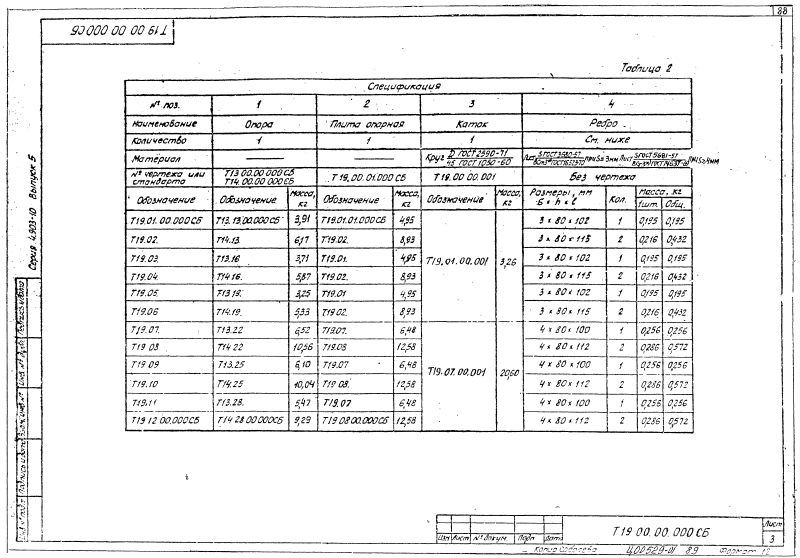 88
Т 19 00 00 000 СБ
Таблица 2
Серия 4.903-10 Выпуск 5
Спецификация
№ поз. 1 2 3 4
Наименование Опора Плита опорная Каток Ребро
Количество 1 1 1 См. ниже
Материал — — Круг D ГОСТ 2590-71 / 45 ГОСТ 1050-60 Лист при S=3мм Лист при S=4мм
№ чертежа или стандарта Т13 00.00 000 СБ Т14.00.00 000 СБ Т 19.00.01.000 СБ Т 19.00.00.001 Без чертежа
Обозначение Обозначение Масса, кг Обозначение Масса, кг Обозначение Масса, кг Размеры, мм Б × h × ℓ Кол. Масса, кг 1шт. Общ.
Т19.01.00.000СБ Т13.13.00.000СБ 3,91 Т19.01.01.000СБ 4,95 Т19.01.00.001 3,26 3 × 80 × 102 1 0,195 0,195
Т19.02. Т14.13. 6,17 Т19.02. 8,93 3 × 80 × 115 2 0,216 0,432
Т19.03. Т13.16 3,71 Т19.01. 4,95 3 × 80 × 102 1 0,195 0,195
Т19.04. Т14.16. 5,87 Т19.02. 8,93 3 × 80 × 115 2 0,216 0,432
Т19.05. Т13 19. 3,25 Т19.01 4,95 3 × 80 × 102 1 0,195 0,195
Т19.06 Т14.19. 5,33 Т19.02. 8,93 3 × 80 × 115 2 0,216 0,432
Т19.07. Т13.22 6,52 Т19.07. 6,48 Т19.07.00.001 20,60 4 × 80 × 100 1 0,256 0,256
Т19 08 Т14 22 10,56 Т19.08 12,58 4 × 80 × 112 2 0,286 0,572
Т19 09 Т13.25 6,10 Т19.07 6,48 4 × 80 × 100 1 0,256 0,256
Т19.10 Т14.25 10,04 Т19 08. 12,58 4 × 80 × 112 2 0,286 0,572
Т19.11 Т13.28. 5,47 Т19.07 6,48 4 × 80 × 100 1 0,256 0,256
Т19 12 00.000СБ Т14 28 00 000СБ 9,29 Т19 08 00.000СБ 12,58 4 × 80 × 112 2 0,286 0,572
Изм Лист № докум. Подп Дата
Т 19 00. 00. 000 СБ
Лист
3
Ц00529-01 89
Формат 12